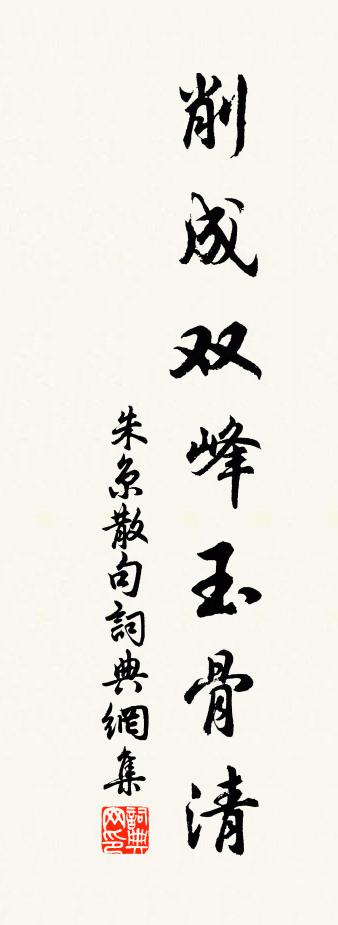 削成双峰玉骨清
朱京散句詞典網集
詞典网印